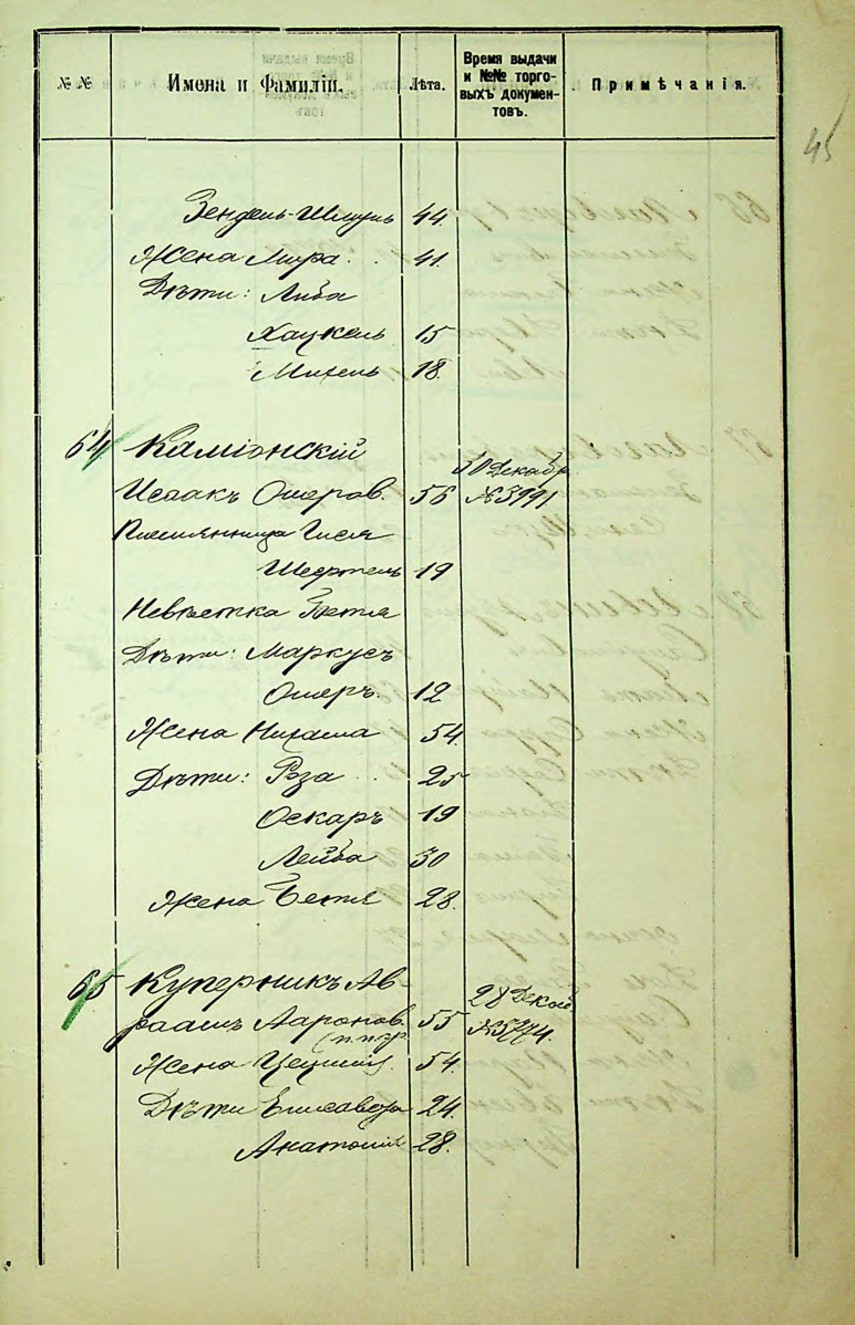 45
№ № Имена и Фамиліи. Лѣта. Время выдачи и №№ торговыхъ документовъ. Примѣчанія.
Зендель-Шмуль 44
Жена Мира . . 41.
Дѣти: Либа
Хацкель 15
Михель 18.
64 Каміонскій
Исаакъ Ошеров. 56 30 Декабр. №3991
Племянница Гися
19
Невѣстка Бетя
Дѣти: Маркусъ
Ошеръ. 12
Жена Нихама 54.
Дѣти: Роза . . 25
Оскаръ 19
Лейба 30
Жена Бетя 28.
65 Куперникъ Ав-
раамъ Ааронов. 55 28 Декаб.
Жена 54.
Дѣти Елисавета 24
Анатолій 28.